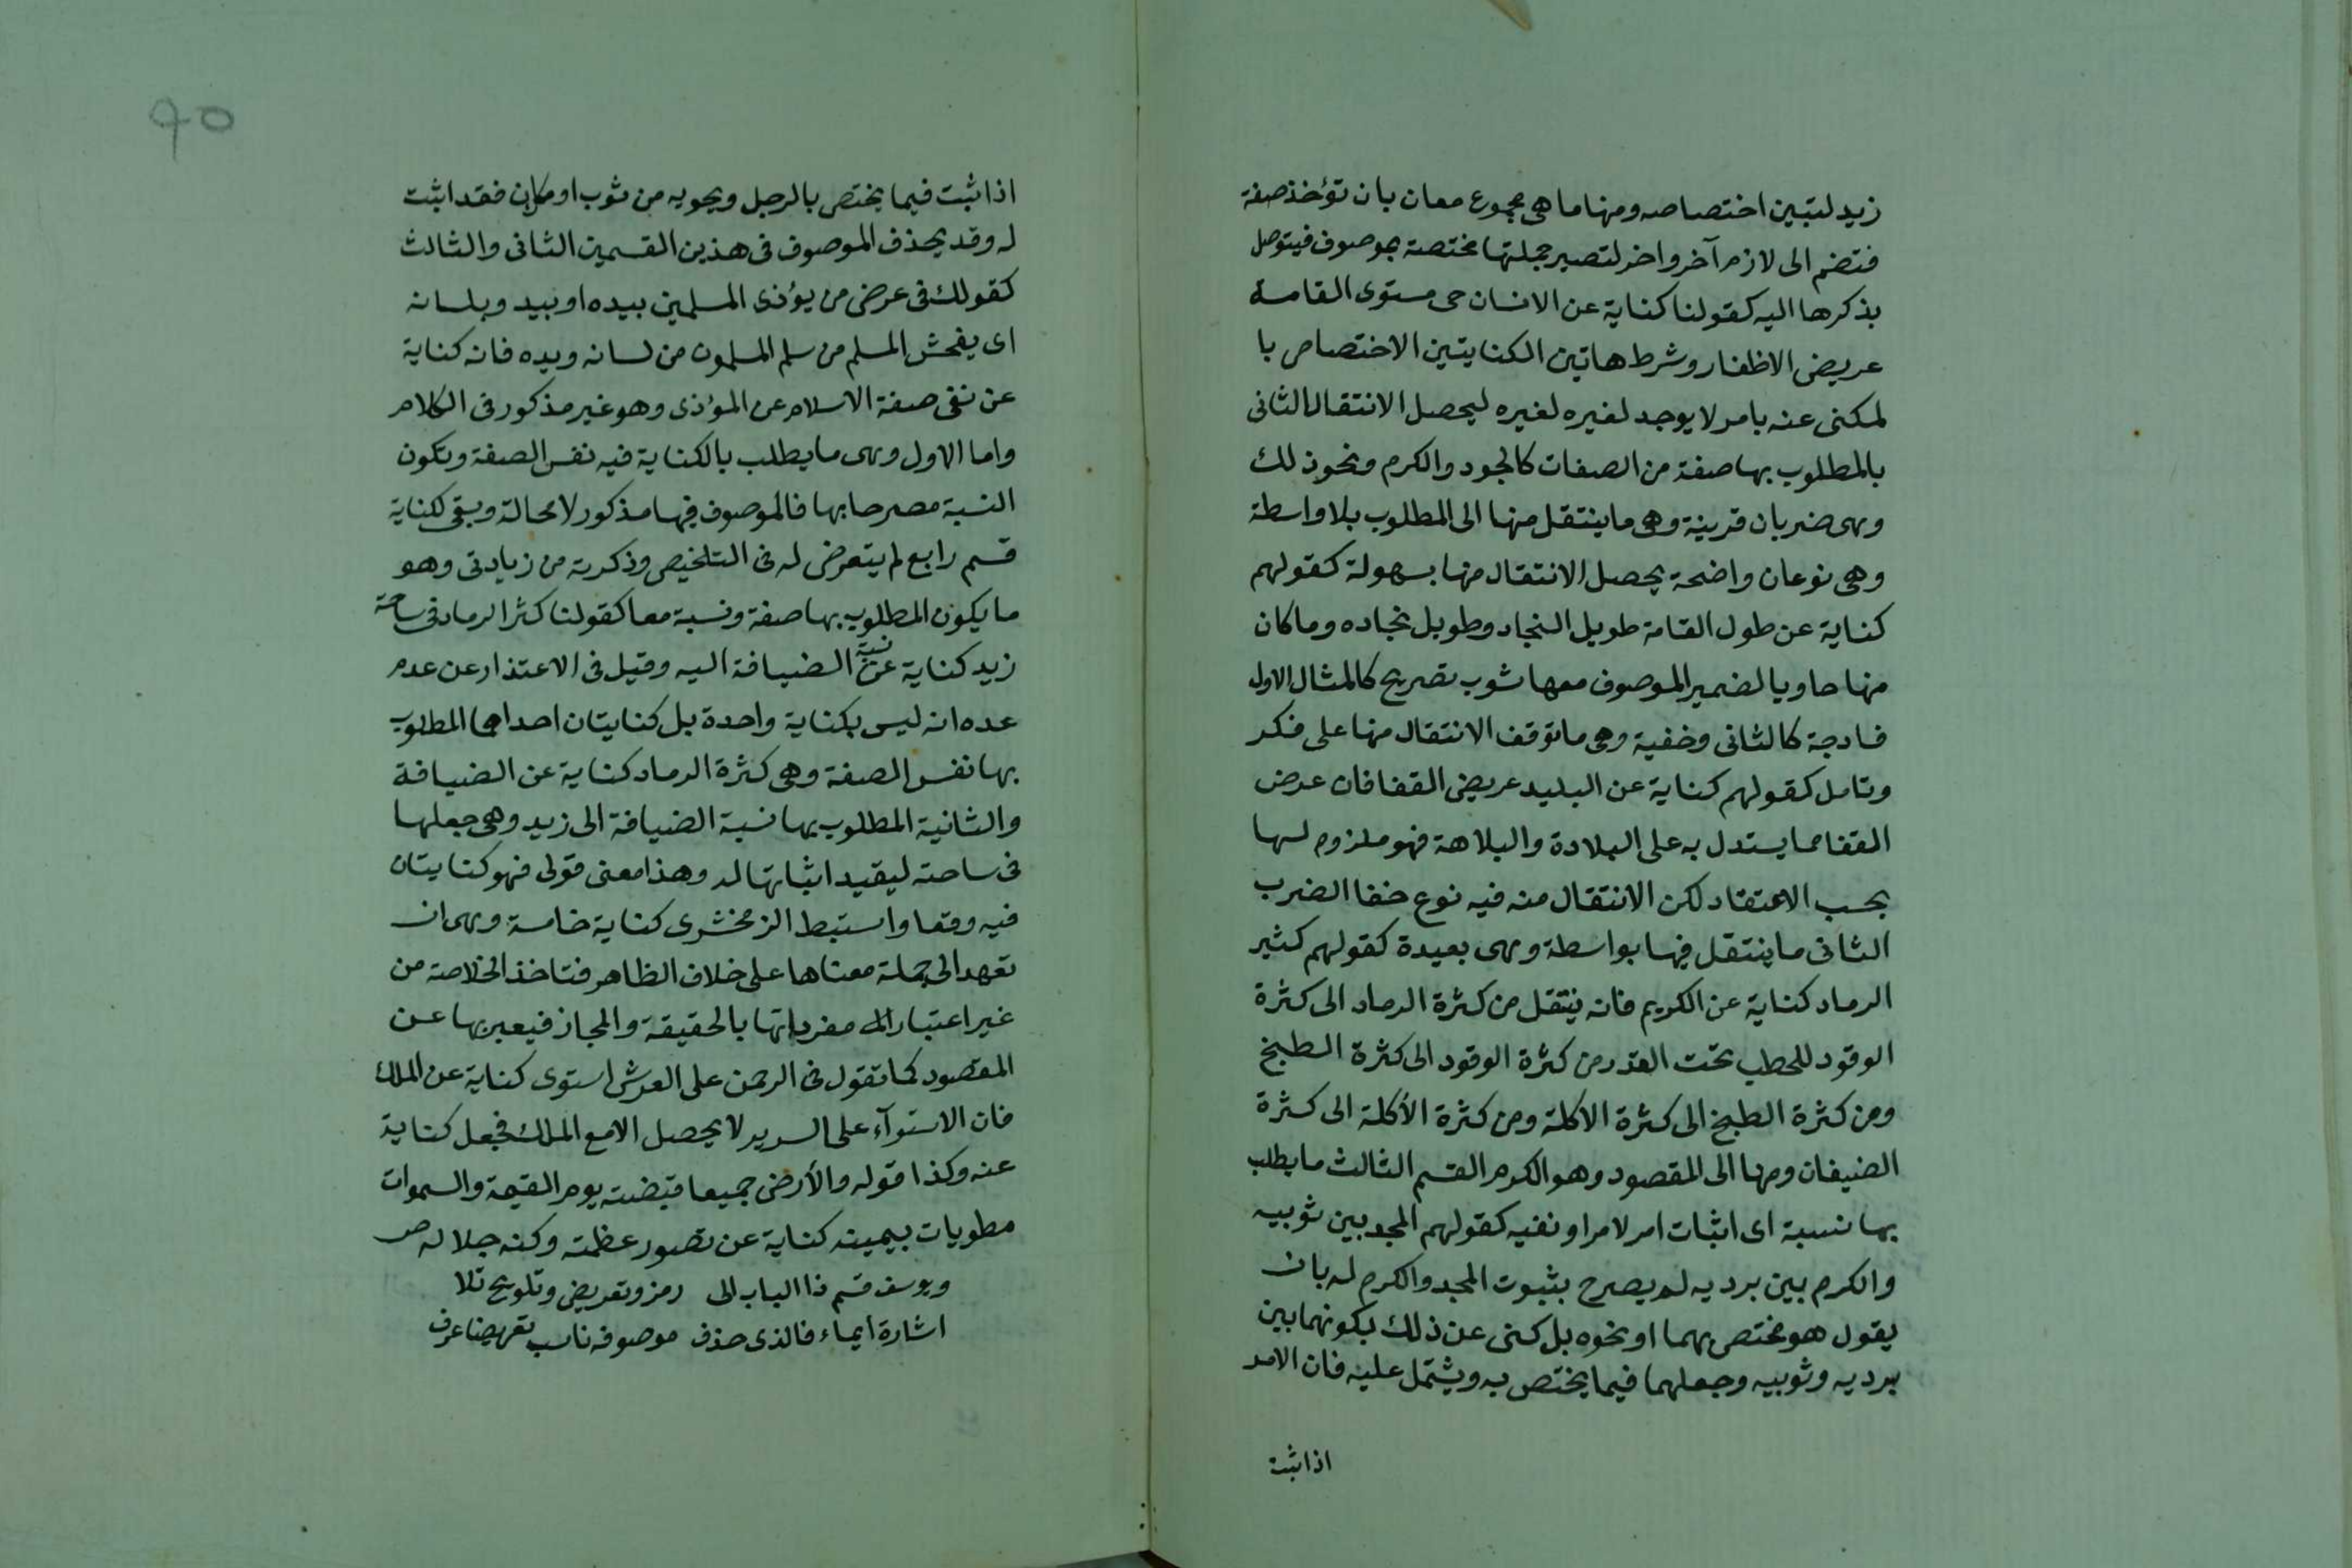 زيد لتبين اختصاصه ومنها ما هى مجموع معان بان تؤخذ صفة
فتضم الى لازم آخر واخر لتصير جملتها مختصة بموصوف فيتوصل
بذكرها اليه كقولنا كناية عن الانسان حى مستوى القامة
عريض الاظفار وشرط هاتين الكنايتين الاختصاص با
لمكنى عنه بامر لا يوجد لغيره لغيره ليحصل الانتقال الثانى
بالمطلوب بها صفة من الصفات كالجود والكرم ونحو ذلك
وهى ضربان قرينة وهى ما ينتقل منها الى المطلوب بلا واسطة
وهى نوعان واضحة يحصل الانتقال منها بسهولة كقولهم
كناية عن طول القامة طويل النجاد وطويل نجاده وما كان
منها حاويا لضمير الموصوف معها شوب تصريح كالمثال الاول
فسادجة كالثانى وخفية وهى ما توقف الانتقال منها على فكر
وتامل كقولهم كناية عن البليد عريض القفا فان عرض
القفا مما يستدل به على البلادة والبلاهة فهو ملزوم لها
بحسب الاعتقاد لكن الانتقال منه فيه نوع خفا الضرب
الثانى ما ينتقل فيها بواسطة وهى بعيدة كقولهم كثير
الرماد كناية عن الكريم فانه ينتقل من كثرة الرماد الى كثرة
الوقود للحطب تحت القدر من كثرة الوقود الى كثرة الطبخ
ومن كثرة الطبخ الى كثرة الاكلة ومن كثرة الأكلة الى كثرة
الضيفان ومنها الى المقصود وهو الكرم القسم الثالث ما يطلب
بها نسبة اى اثبات امر لامر او نفيه كقولهم المجد بين ثوبيه
والكرم بين برديه لم يصرح بثبوت المجد والكرم له بان
يقول هو مختص بهما او نحوه بل كنى عن ذلك بكونهما بين
برديه وثوبيه وجعلهما فيما يختص به ويشتمل عليه فان الامر
اذا ثبت
٩٥
اذا ثبت فيما يختص بالرجل ويحويه من ثوب او مكان فقد اثبت
له وقد يحذف الموصوف فى هذين القسمين الثانى والثالث
كقولك فى عرض من يؤذى المسلمين بيده او بيد وبلسانه
اى يفحش المسلم من سلم المسلمون من لسانه ويده فانه كناية
عن نفى صفة الاسلام عن المؤذى وهو غير مذكور فى الكلام
واما الاول وهى ما يطلب بالكناية فيه نفس الصفة وتكون
النسبة مصرحا بها فالموصوف فيها مذكور لا محالة وبقى لكناية
قسم رابع لم يتعرض له فى التلخيص وذكرته من زيادتى وهو
ما يكون المطلوب بها صفة ونسبة معا كقولنا كثر الرماد فى ساحة
زيد كناية عن نسبة الضيافة اليه وقيل فى الاعتذار عن عدم
عده انه ليس بكناية واحدة بل كنايتان احداهما المطلوب
بها نفس الصفة وهى كثرة الرماد كناية عن الضيافة
والثانية المطلوب بها نسبة الضيافة الى زيد وهى جعلها
فى ساحته ليفيد اثباتها له وهذا معنى قولى فهو كنايتان
فيه وقعا واستبط الزمخشرى كناية خامسة وهى ان
تعهد الى جملة معناها على خلاف الظاهر فتاخذ الخلاصة من
غير اعتبار مفرداتها بالحقيقة والمجاز فيعبر بها عن
المقصود كما تقول فى الرحمن على العرش استوى كناية عن الملك
فان الاستوآء على السرير لا يحصل الا مع الملك فجعل كناية
عنه وكذا قوله والأرض جميعا قبضته يوم القيمة والسموات
مطويات بيمينه كناية عن تصور عظمته وكنه جلاله ص
ويوسف قسم ذا الباب الى رمز وتعريض وتلويح تلا
اشارة ايماء فالذى حذف موصوفه ناسب تعريضا عرف